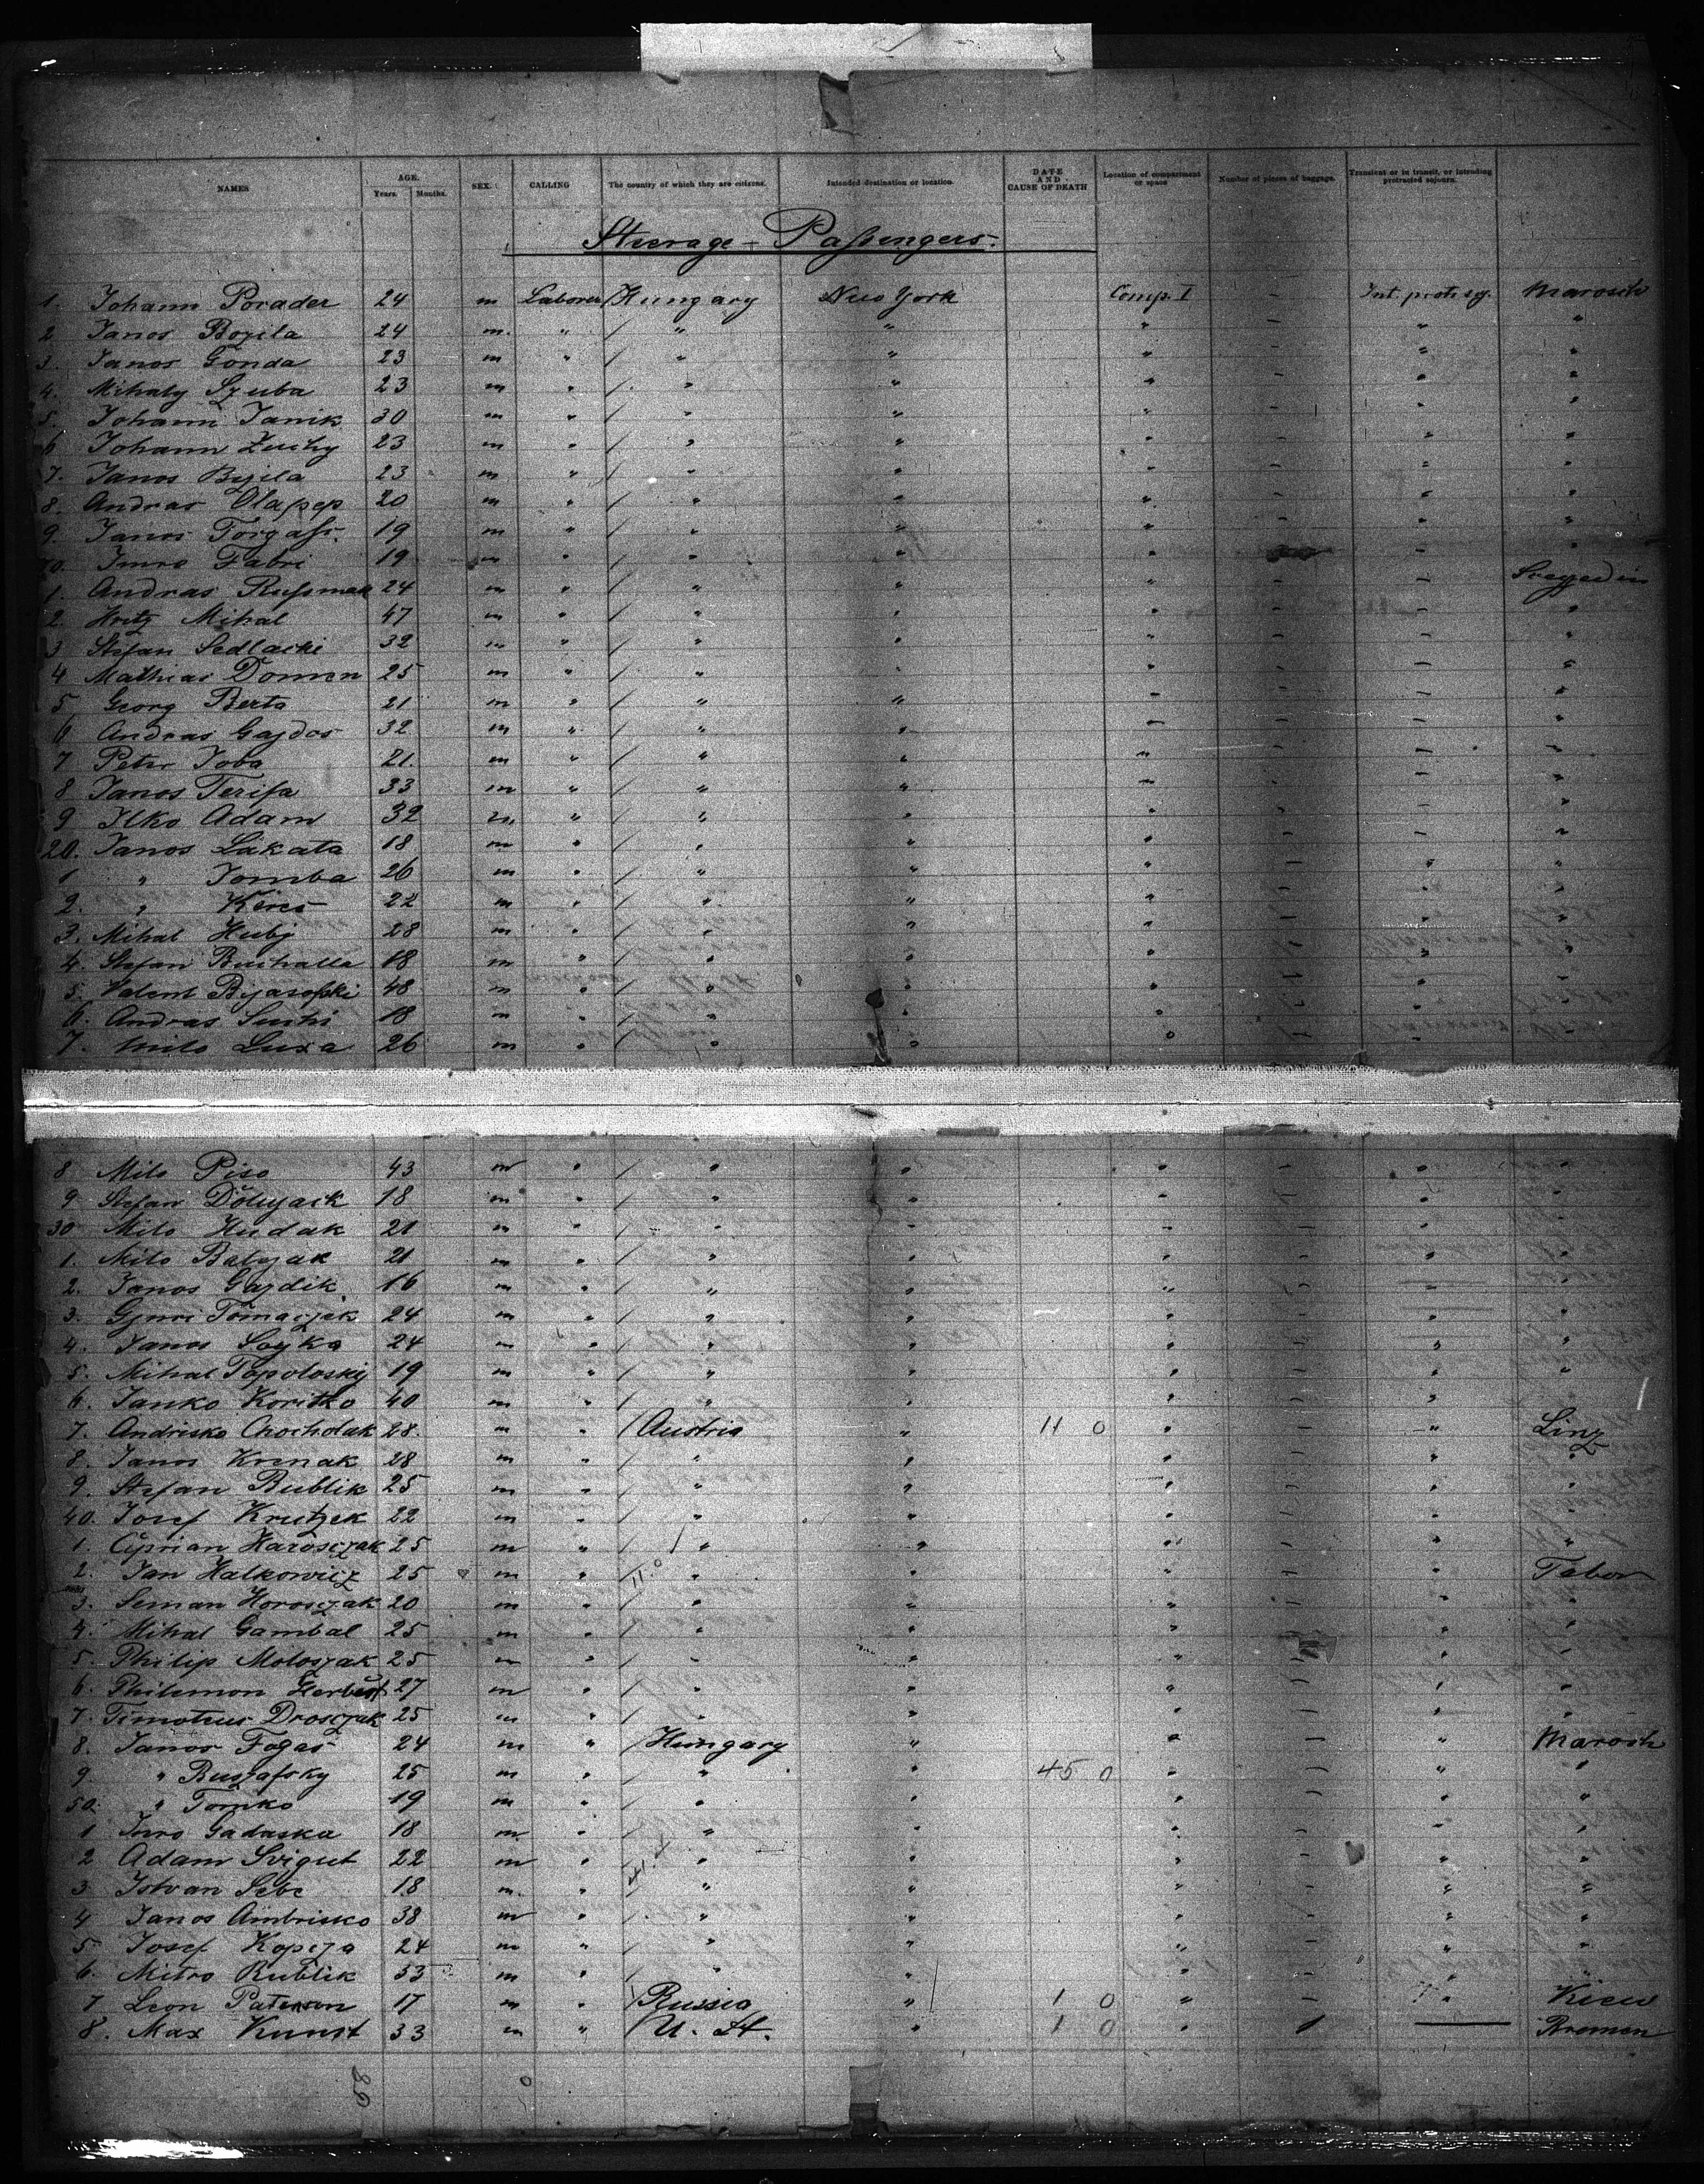 NAMES AGE. Years. Months. SEX. CALLING The country of which they are citizens. Intended destination or location. DATE AND CAUSE OF DEATH Location of compartment or space Number of pieces of baggage. Transient or in transit, or intending protracted sojourn.
Steerage - Passengers.
1. Johann Porader 24 m Laborer / Hungary New York Comp. I - Int. prot. sj. Marosch
2 Janos Bozila 24 m. " / " " " - " "
3. Janos Gonda 23 m " / " " " - " "
4. Mihaly Szuba 23 m " / " " " - " "
5. Johann Janik 30 m " / " " " - " "
6 Johann Zuchy 23 m " / " " " - " "
7. Janos 23 m " / " " " - " "
8. Andras 20 m " / " " " - " "
9. Janos Forgass. 19 m " / " " " - " "
10. Imre Fabri 19 m " / " " " - "
1. Andras Russmak 24 m " / " " - Szegedin
2. Hritz Mihal 47 m " / " " " - - "
3 Stefan Sedlacki 32 m " / " " " - - "
4 Mathias Domen 25 m " / " " " - - "
5 Georg Berta 21 m " / " " " - - "
6 Andras Gajdos 32 m " / " " " - - "
7 Peter Joba 21. m " / " " " - - "
8 Janos 33 m " / " " " - - "
9 Ilko Adam 32 m " / " " " - - "
20. Janos Lakata 18 m " / " " " - - "
1 " Tomba 26 m " / " " " - " "
2. " 22 m " / " " " - " "
3. Mihal Hubj 28 m " / " " " - " "
4. Stefan Buchalla 18 m " / " " " - " "
5. Valent 48 m " / " " " - " "
6. Andras Suchi 18 m " / " " " - " "
7. Mito Luxa 26 m " / " " " - " "
8 Mito Piso 43 m " / " " " - " "
9 Stefan 18 m " / " " " - " "
30 Mito Hudak 21 m " / " " " - " "
1. Mito 21 m " / " " " - " "
2. Janos Gajdik 16 m " / " " " - " "
3. Tomaczek 24 m " / " " " - " "
4. Janos Soyka 24 m " / " " " - " "
5. Mihal Topoloskij 19 m " / " " " - " "
6. Janko Koritko 40 m " / " " " - "
7. Andrisko Chocholak 28. m " / Austria " 11 0 " - " Linz
8. Janos Krenak 28 m " / " " " - " "
9. Stefan Bublik 25 m " / " " " - " "
40. Josef Krutzek 22 m " / " " " - " "
1. Ciprian Harosczak 25 m " / " " " - " "
2. Jan Halkowicz 25 m " 11.0 " " - " Tabor
3. Seman Horosczak 20 m " / " " " - " "
4. Mihal Gambal 25 m " / " " " - " "
5 Philip Moloszak 25 m " / " " " " "
6. Philemon 27 m " / " " " - " "
7. Timoteus Drosczak 25 m " / " " " - " "
8. Janos Fogas 24 m " / Hungary " " - " Marosch
9. " 25 m " / " " 45 0 " - " "
50. " Tomko 19 m " / " " " - " "
1 Juro Gadaska 18 m. " " " " - " "
2 Adam Svigut 22 m " " " " - " "
3 Istvan Sebe 18 m. " " " " - " "
4 Janos Ambrisko 38 m " / " " " - " "
5 Josef Kopcza 24 m " / " " " - " "
6. Mitro Rublik 53 m " / " " " - " "
7 Leon Paterson 17 m " / Russia " 1 0 " - " Kiew
8. Max Kunst 33 m " / U. St. " 1 0 " 1 — Bremen
58 0